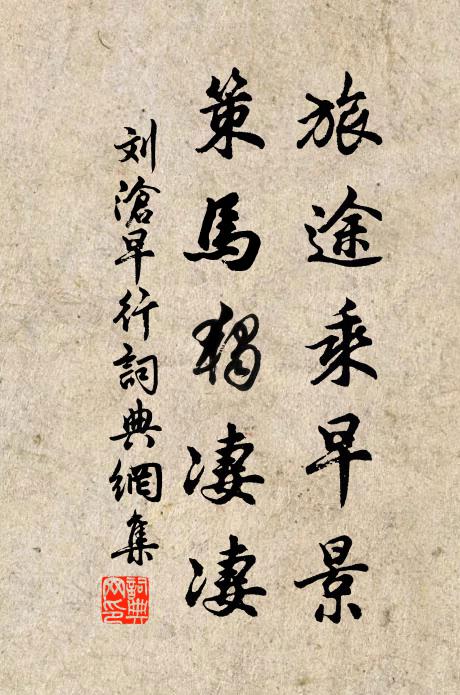 旅途乘早景
策馬獨凄凄
刘滄早行詞典網集
詞典網印